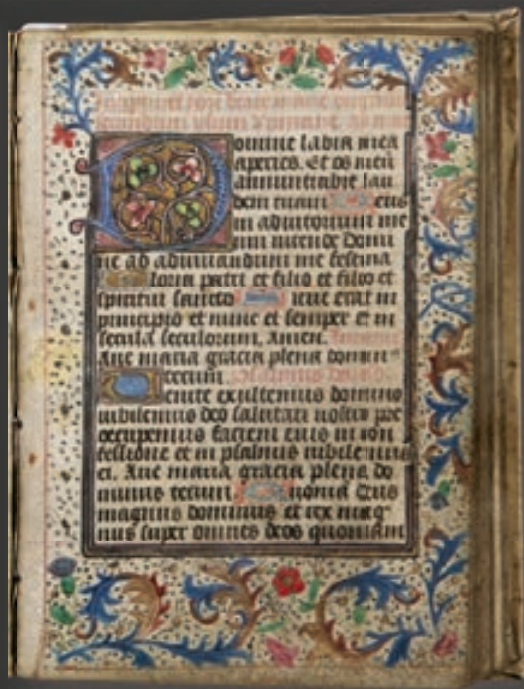 Incipiunt hore beate marie virginis
secundum usum
Domine labia mea
aperies. Et os meū
annuntiabit lau
dem tuam Deus
in adiutorium me
um intende Domi
ne ad adiuuandum me festina
Gloria patri et filio et filio et
spiritui sancto sicut erat in
principio et nunc et semper et in
secula seculorum. Amen.
Aue maria gracia plena domin⁹
tecum.
Venite exultemus domino
iubilemus deo salutari nostro pre
occupemus faciem eius in con
fessione et in psalmis iubilemus
ei. Aue maria gracia plena do
minus tecum Quoniā deus
magnus dominus et rex mag
nus super omnes deos quoniam